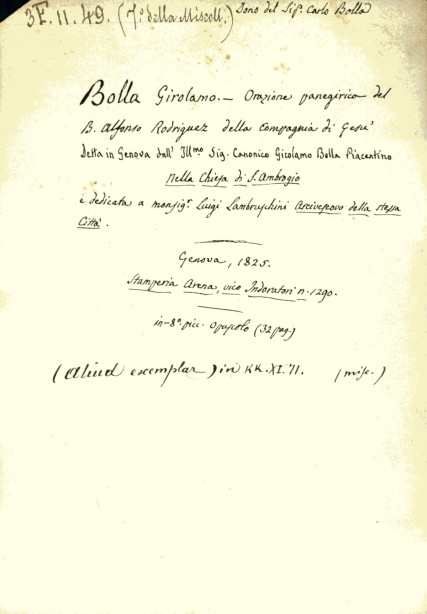 3F.II.49. (7º della Miscell.) Dono del Sigr. Carlo Bolla
Bolla Girolamo. – Orazione panegirica del
B. Alfonso Rodriguez della Compagnia di Gesù
detta in Genova dall' Illmo Sig. Canonico Girolamo Bolla Piacentino
nella Chiesa di S. Ambrogio
e dedicata a monsigr. Luigi Lambruschini Arcivescovo della stessa
Città.
Genova, 1825.
Stamperia Arena, vico Indoratori n. 1290.
in-8º. picc. Opuscolo (32 pag.)
(Aliud exemplar) in KK.XI.71. (misc.)